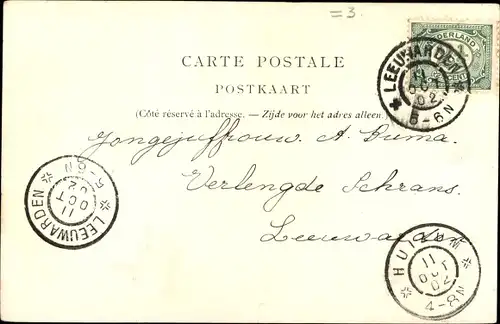 =3
NEDERLAND
LEEUWARDEN
11
OCT
02
5-6N
CARTE POSTALE
POSTKAART
(Côté réservé à l'adresse. — Zijde voor het adres alleen.)
Jongejuffrouw A. Buma.
Verlengde Schrans.
Leeuwarden
LEEUWARDEN
5-6N
11
OCT
02
HUIZUM
11
OCT
02
4-8N